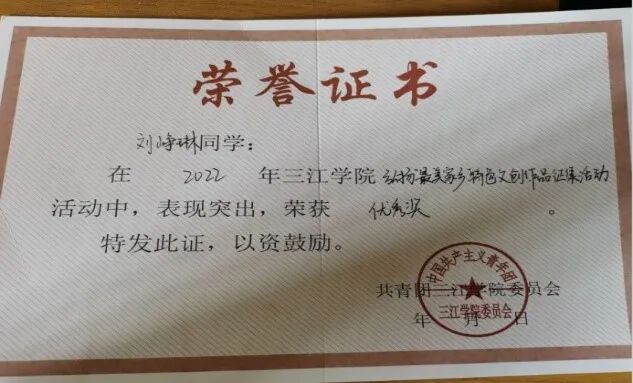 荣誉证书
刘峥琳同学：
在 2022 年三江学院 弘扬最美家乡特色文创作品征集活动
活动中，表现突出，荣获 优秀奖 。
特发此证，以资鼓励。
共青团三江学院委员会
年 月 日
中国共产主义青年团
三江学院委员会